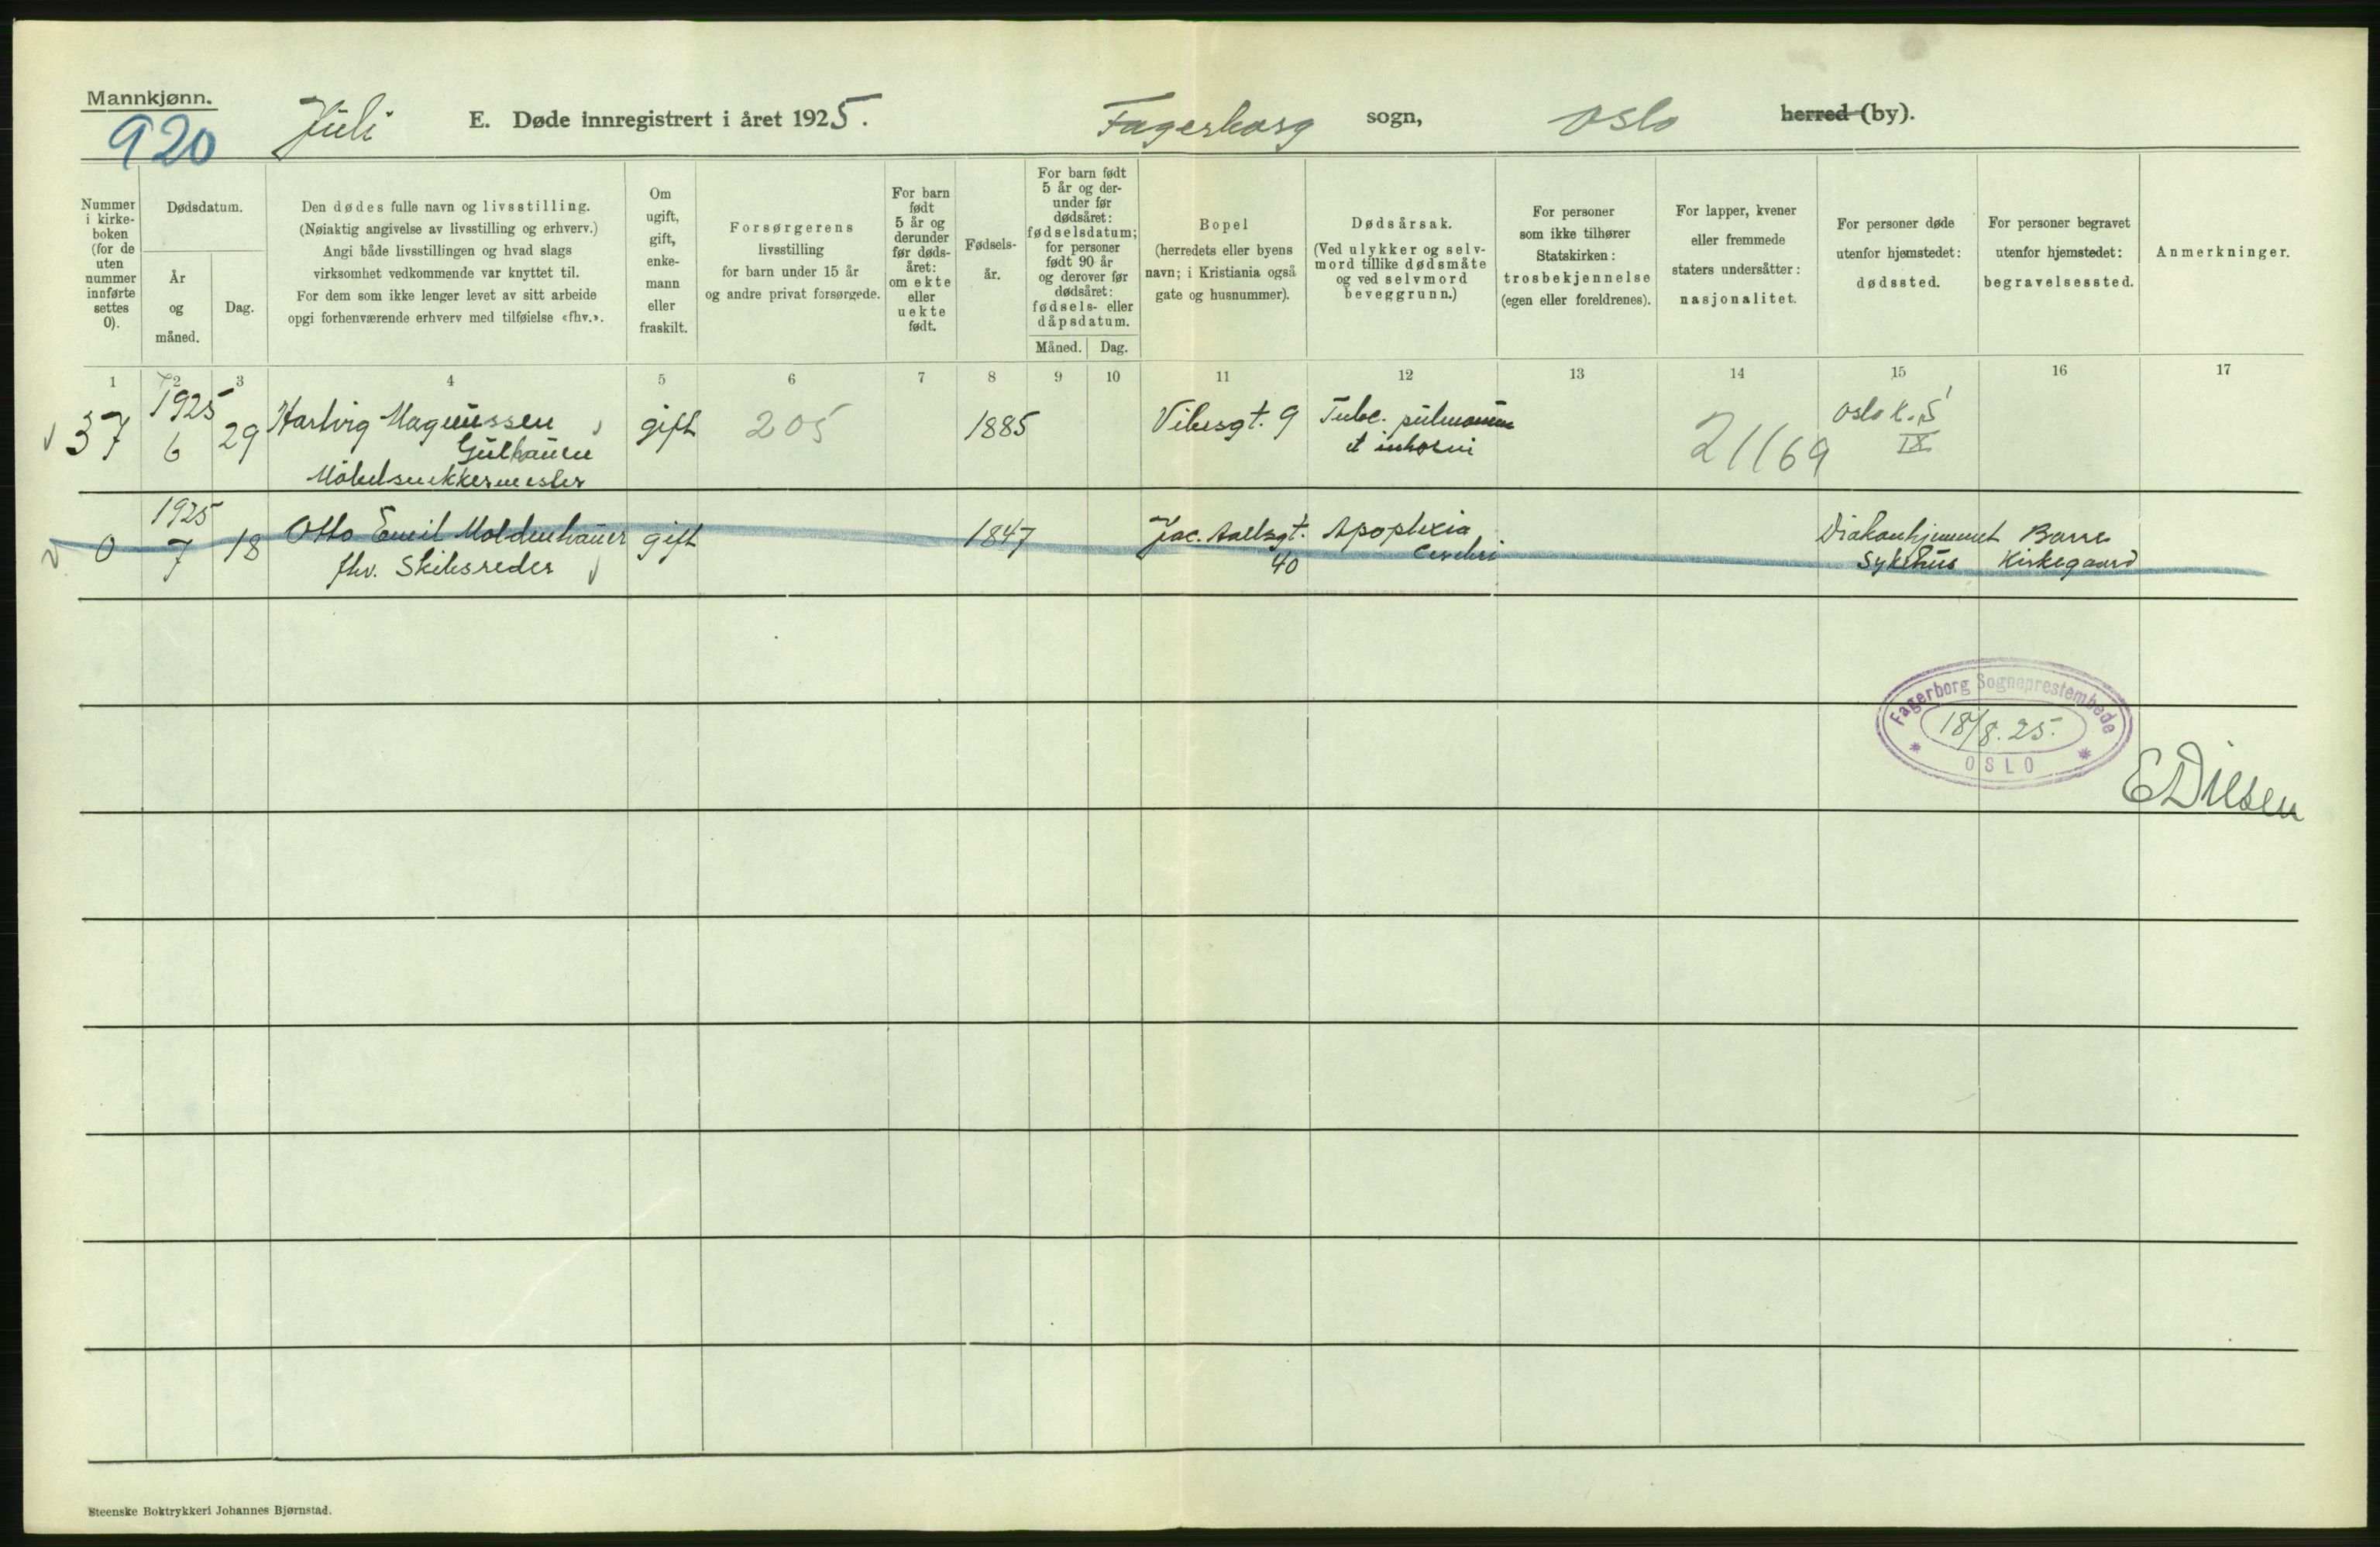 Mannkjønn.
920
Juli
E. Døde innregistrert i året 1925.
Fagerborg sogn, Oslo herred (by).
Nummer i kirke-boken (for de uten nummer innførte settes 0).
Dødsdatum.
År og måned.
Dag.
Den dødes fulle navn og livsstilling.
(Nøiaktig angivelse av livsstilling og erhverv.)
Angi både livsstillingen og hvad slags
virksomhet vedkommende var knyttet til.
For dem som ikke lenger levet av sitt arbeide
opgi forhenværende erhverv med tilføielse «fhv.».
Om ugift, gift, enke-mann eller fraskilt.
Forsørgerens
livsstilling
for barn under 15 år
og andre privat forsørgede.
For barn født 5 år og derunder før døds-året: om ekte eller uekte født.
Fødsels-år.
For barn født 5 år og der-under før dødsåret: fødselsdatum; for personer født 90 år og derover før dødsåret: fødsels- eller dåpsdatum.
Måned.
Dag.
Bopel
(herredets eller byens
navn; i Kristiania også
gate og husnummer).
Dødsårsak.
(Ved ulykker og selv-
mord tillike dødsmåte
og ved selvmord
beveggrunn.)
For personer
som ikke tilhører
Statskirken:
trosbekjennelse
(egen eller foreldrenes).
For lapper, kvener
eller fremmede
staters undersåtter:
nasjonalitet.
For personer døde
utenfor hjemstedet:
dødssted.
For personer begravet
utenfor hjemstedet:
begravelsessted.
Anmerkninger.
1 2 3 4 5 6 7 8 9 10 11 12 13 14 15 16 17
37 1925 6 29 Hartvig Magnussen gift 205 1885 Vibesgt. 9 Tuberc. pulmonum 21169 Oslo k. S
Gulhaugen et IX
Möbelsnekkermester
0 1925 7 18 Otto Emil Moldenhauer gift 1847 Jac. Aallsgt. Apoplexia Diakonhjemmet Borre
fhv. Skibsreder 40 Cerebri Sykehus Kirkegaard
Fagerborg Sogneprestembede
18/8. 25.
OSLO
Steenske Boktrykkeri Johannes Bjørnstad.